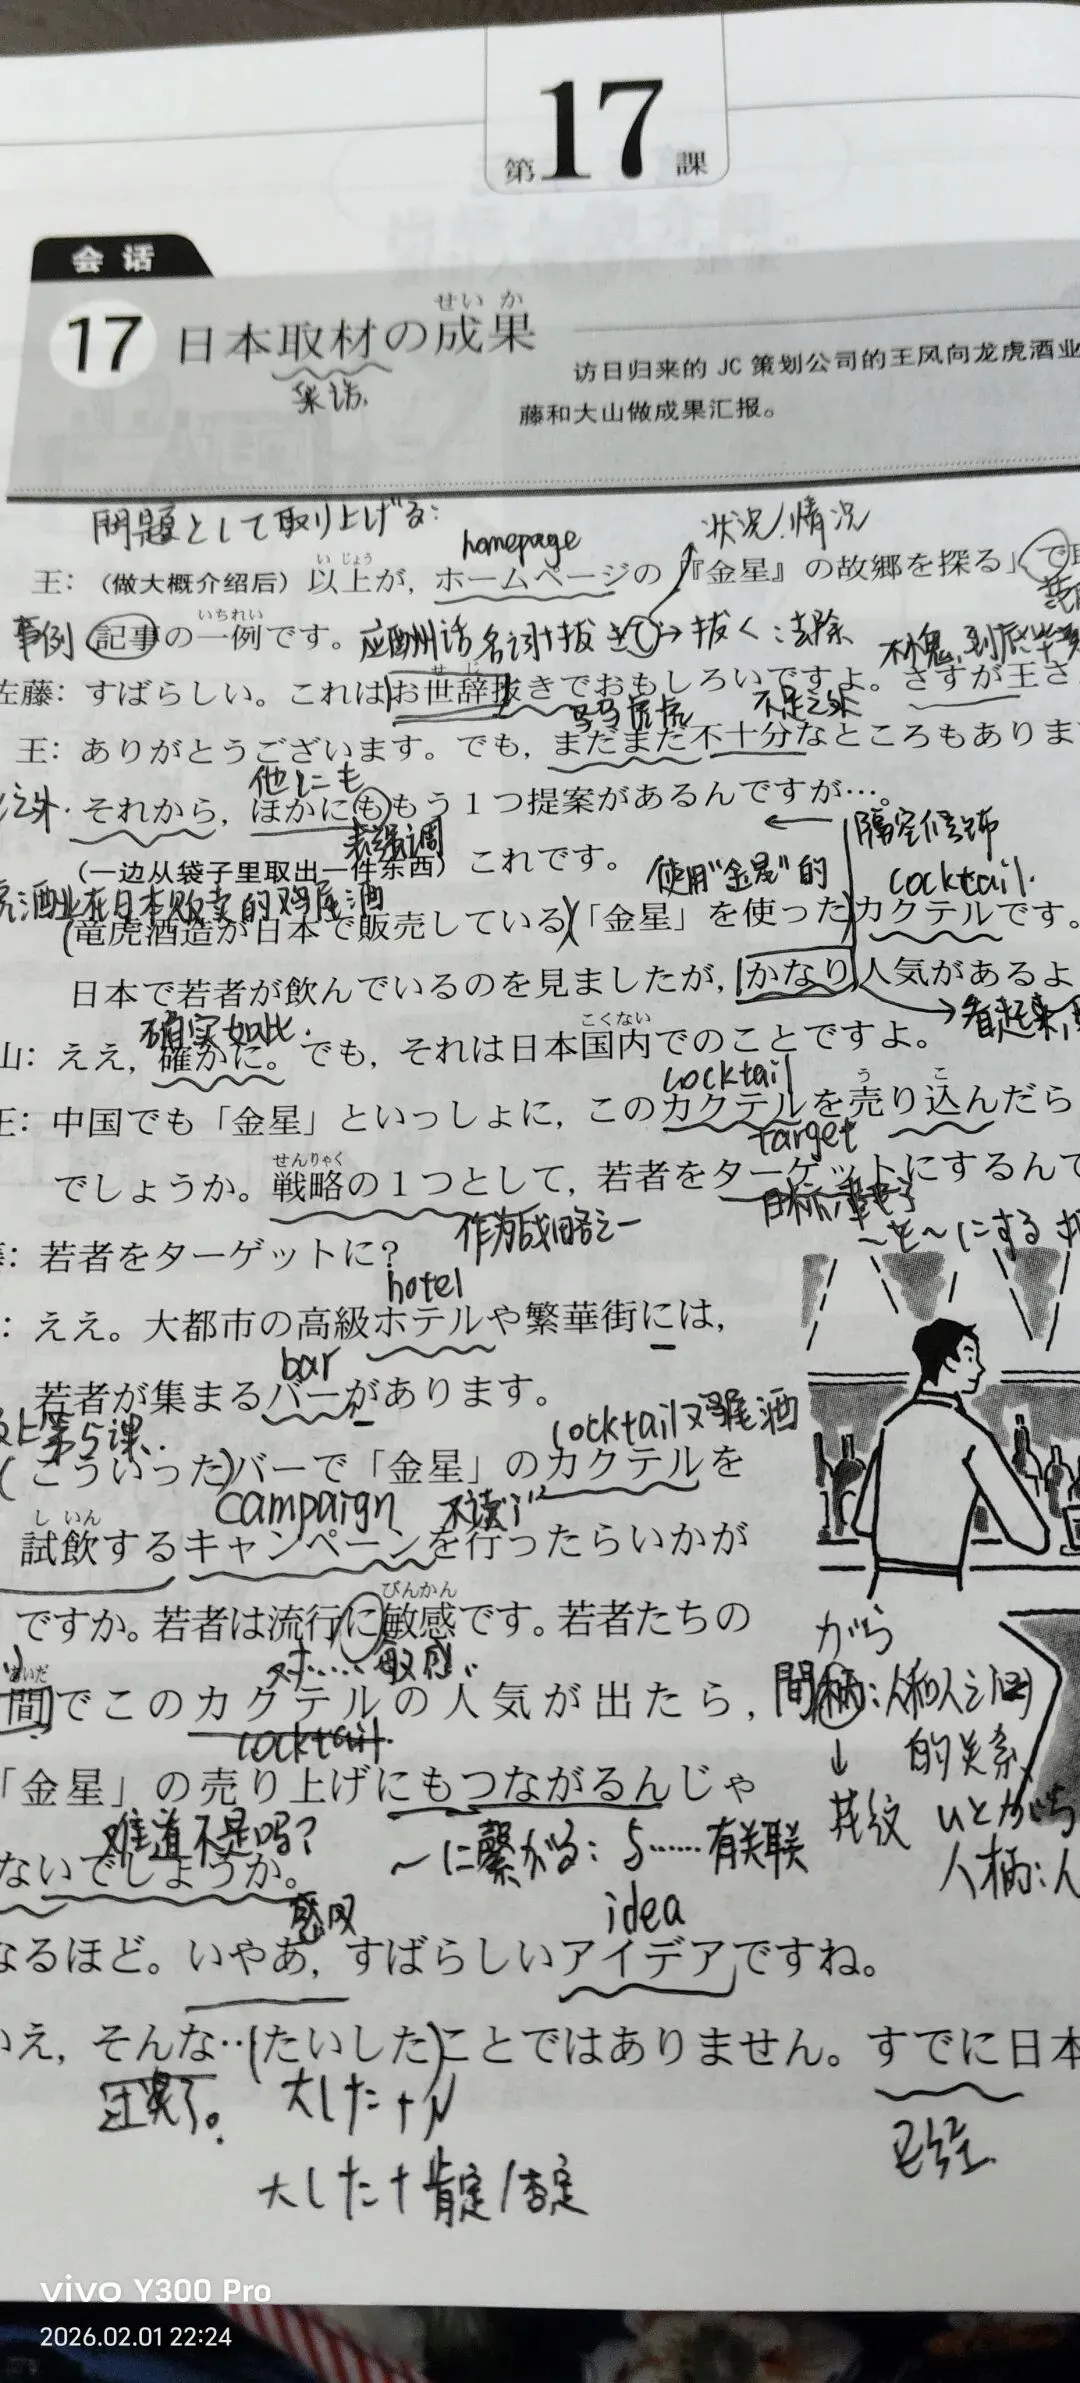 第17課
会 话
17 日本取材の成果
せいか
采访.
访日归来的 JC 策划公司的王风向龙虎酒业
藤和大山做成果汇报。
問題として取り上げる:
homepage
状况/情况
いじょう
王:（做大概介绍后）以上が，ホームページの『金星』の故郷を探る」で
いちれい
事例 記事の一例です。 应酬话 名词+抜きで→抜く:去除
せじ
佐藤: すばらしい。これはお世辞抜きでおもしろいですよ。さすが王さ
马马虎虎 不足之处
王: ありがとうございます。でも，まだまだ不十分なところもありま
他にも
之外. それから，ほかにももう１つ提案があるんですが…。
表强调 隔空修饰
（一边从袋子里取出一件东西）これです。 使用“金星”的 cocktail.
酒业在日本贩卖的鸡尾酒
(竜虎酒造が日本で販売している)(「金星」を使った)カクテルです。
日本で若者が飲んでいるのを見ましたが，かなり人気があるよ
确实如此. こくない 看起来
山: ええ，確かに。でも，それは日本国内でのことですよ。
cocktail う こ
王: 中国でも「金星」といっしょに，このカクテルを売り込んだら
target
せんりゃく
でしょうか。戦略の１つとして，若者をターゲットにするんで
作为战略之一 ～を～にする
藤: 若者をターゲットに?
hotel
: ええ。大都市の高級ホテルや繁華街には，
bar
若者が集まるバーがあります。
上第5课.. cocktail又鸡尾酒
(こういった)バーで「金星」のカクテルを
campaign 不读
しいん
試飲するキャンペーンを行ったらいかが
びんかん
ですか。若者は流行に敏感です。若者たちの
対……敏感 がら
あいだ
間でこのカクテルの人気が出たら， 間柄:人和人之间
cocktail. ↓ 的关系
「金星」の売り上げにもつながるんじゃ
难道不是吗? ～に繋がる: 与……有关联 花纹 ひとがら
ないでしょうか。 人柄:人
感叹 idea
なるほど。いやあ，すばらしいアイデアですね。
いえ，そんな‥(たいした)ことではありません。すでに日本
过奖了。 大した+N 已经
大した+肯定/否定
vivo Y300 Pro
2026.02.01 22:24